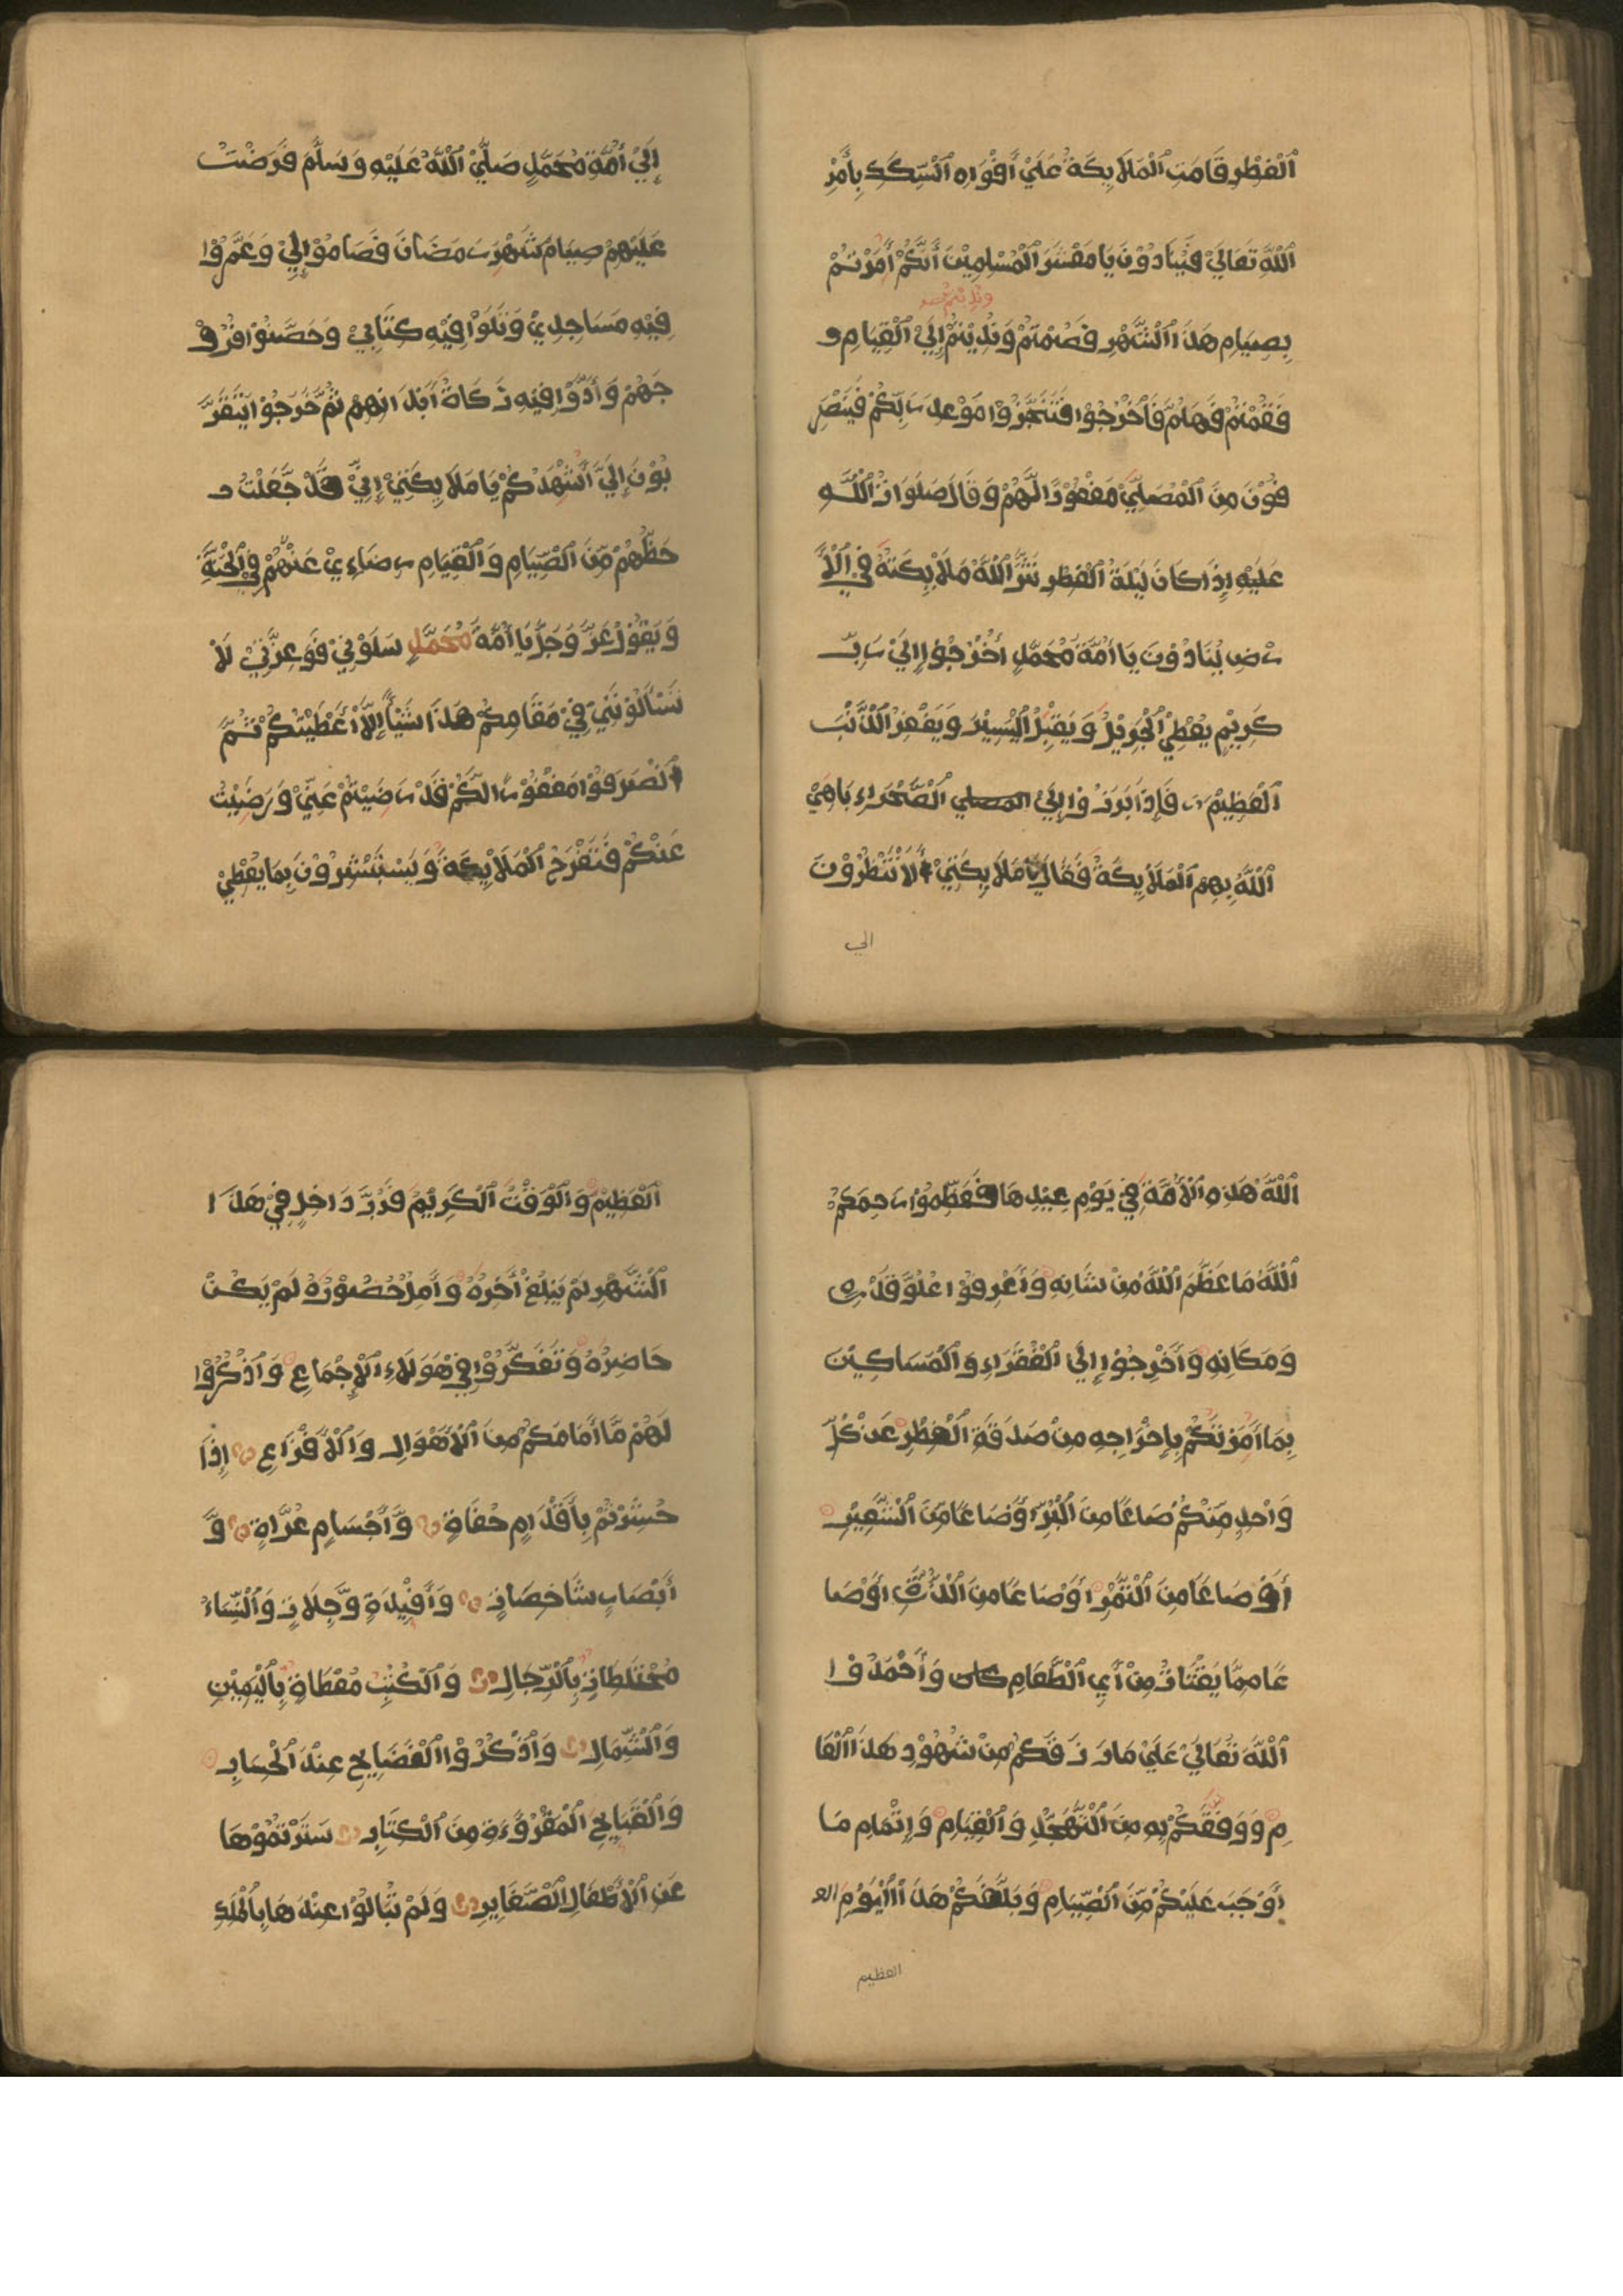 اَلْفِطْرِ قَامَتِ اَلْمَلَايِكَةُ عَلَيْ أَفْوَاهِ اَلسِّكَكِ بِأَمْرِ
اَللَّهِ تَعَالَيْ فَيُنَادُوْنَ يَا مَعْشَرَ اَلْمُسْلِمِيْنَ أَنَّكُمْ أُمِرْتُمْ
بِصِيَامِ هَذَا اَلشَّهْرِ فَصُمْتُمْ وَنُدِيْتُمْ إِلَيْ اَلْقِيَامِ و
فَقُمْتُمْ فَهَلُمَّ فَأَخْرُجُوْا فَتَنَجَّزُوْا مَوْعِدَ رَبِّكُمْ فَيَنْصَرِ
فُوْنَ مِنَ اَلْمُصَلِّيْ مَغْفُوْرًا لَّهُمْ وَقَالَ صَلَوَاتُ اَللَّهِ
عَلَيْهِ إِذَا كَانَ لَيْلَةُ اَلْفِطْرِ نَشَرَ اَللَّهُ مَلَايِكَتَهُ فِي اَلْأَ
رْضِ يُنَادُوْنَ يَا أُمَّةَ مُحَمَّدٍ أُخْرُجُوْا إِلَيْ رَبٍّ
كَرِيْمٍ يُعْطِيْ اَلْجَزِيْلَ وَيَقْبِلُ اَلْيَسِيْرَ وَيَغْفِرُ اَلذَّنْبَ
اَلْعَظِيْمَ فَإِذَا بَرَزُوْا إِلَيْ المصلي اَلصَّحْرَاءِ بَاهِيْ
اَللَّهُ بِهِمْ اَلْمَلَايِكَةُ فَقَالَ يَا مَلَايِكَتِيْ أَلَا تَنْظُرُوْنَ
الي
إِلَيْ أُمَّةِ مُحَمَّدٍ صَلَّيْ اَللَّهُ عَلَيْهِ وَسَلَّمَ فَرَضْتُ
عَلَيْهِمْ صِيَامَ شَهْرِ رَمَضَانَ فَصَامُوْا لِيْ وَعَمَّرُوْا
فِيْهِ مَسَاجِدِيْ وَتَلَوْا فِيْهِ كِتَابِيْ وَحَصَّنُوْا فُرُوْ
جَهُمْ وَأَدَّوْا فِيْهِ زَكَاةَ أَبْدَانِهِمْ ثُمَّ خَرَجُوْا يَتَقَرَّ
بُوْنَ إِلَيَّ أُشْهِدُكُمْ يَا مَلَايِكَتِيْ إِنِّيْ قَدْ جَعَلْتُ
حَظَّهُمْ مِّنَ اَلصِّيَامِ وَاَلْقِيَامِ رِضَاءِيْ عَنْهُمْ فِي اَلْجَنَّةِ
وَيَقُوْلُ عَزَّ وَجَلَّ يَا أُمَّةَ مُحَمَّدٍ سَلُوْنِيْ فَوَعِزَّتِيْ لَا
تَسْأَلُوْنَنِيْ فِيْ مَقَامِكُمْ هَذَا شَيْأً إِلَّا أَعْطَيْتُكُمْ ثُمَّ
اَنْصَرَفُوْا مَغْفُوْرًا لَّكُمْ قَدْ رَضِيْتُمْ عَنِّيْ وَرَضِيْتُ
عَنْكُمْ فَتَفْرَحُ اَلْمَلَايِكَةُ وَيَسْتَبْشِرُوْنَ بِمَا يُعْطِيْ
اَللَّهُ هَذِهِ اَلْأُمَّةَ فِيْ يَوْمِ عِيْدِهَا فَعَظِّمُوْا رَحِمَكُمُ
اَللَّهُ مَا عَظَّمَ اَللَّهُ مِنْ شَانِهِ وَأَعْرِفُوْا عُلُوَّ قَدْرِهِ
وَمَكَانِهِ وَأَخْرِجُوْا إِلَي اَلْفُقَرَاءِ وَاَلْمَسَاكِيْنَ
بِمَا أَمَرْتُكُمْ بِإِخْرَاجِهِ مِنْ صَدَقَةِ اَلْفِطْرِ عَنْ كُلِّ
وَاحِدٍ مِّنْكُمْ صَاعًا مِنَ اَلْبُرِّ أَوْ صَاعًا مِّنَ اَلشَّعِيْرِ
أَوْ صَاعًا مِنَ اَلتَّمْرِ أَوْ صَاعًا مِنَ اَلذُّرَةِ أَوْ صَا
عًا مِمَّا يُقْتَاتُ مِنْ أَيِ اَلطَّعَامِ كان وَأَحْمَدُوْا
اَللَّهَ تَعَالَيْ عَلَيْ مَا رَزَقَكُمْ مِنْ شُهُوْدِ هَذَا اَلْعَا
مِ وَوَفَّقَكُمْ بِهِ مِنَ اَلتَّهَجُّدِ وَاَلْقِيَامِ وَإِتْمَامِ مَا
أَوْجَبَ عَلَيْكُمْ مِّنَ اَلصِّيَامِ وَبَلَّغَكُمْ هَذَا اَلْيَوْمِ الع
العظيم
اَلْعَظِيْمِ وَاَلْوَقْتَ اَلْكَرِيْمَ فَرُبَّ دَاخِلٍ فِيْ هَذَا
اَلشَّهْرِ لَمْ يَبْلُغْ أَخِرَهُ وَأَمِلٍ حُضُوْرَهُ لَمْ يَكُنْ
حَاضِرَهُ وَتَفَكَّرُوْا فِيْ هَوُلَاءِ اَلْإِجْمَاعِ وَاَذْكُرُوْا
لَهُمْ مَّا أَمَامَكُمْ مِنَ اَلْأَهْوَالِ وَاَلْأَفْزَاعِ إِذَا
حُشِرْتُمْ بِأَقْدَامٍ حُفَاةٍ وَّأَجْسَامٍ عُرَاةٍ وَّ
أَبْصَارٍ شَاخِصَاتٍ وَأَفْيِدَةٍ وَّجِلَاتٍ وَاَلنِّسَاءُ
مُخْتَلِطَاتٌ بِاَلرِّجَالِ وَاَلْكُتُبِ مُعْطَاةٌ بِاَلْيَمِيْنِ
وَاَلشِّمَالِ وَاَذْكُرُوْا اَلْفَضَايِحَ عِنْدَ اَلْحِسَابِ
وَاَلْقَبَايِحَ اَلْمَقْرُوْءَةِ مِنَ اَلْكِتَابِ سَتَرْتُمُوْهَا
عَنِ اَلْأَطْفَالِ اَلصَّغَايِرِ وَلَمْ تُبَالُوْا عِنْدَهَا بِاَلْمَلِكِ